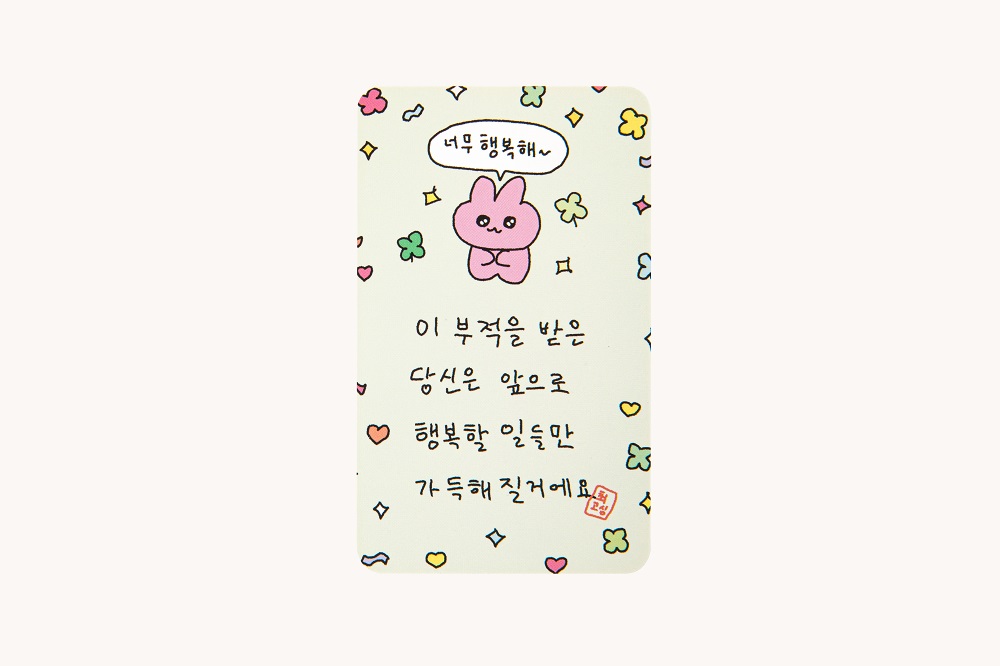 너무 행복해~
이 부적을 받은
당신은 앞으로
행복할 일들만
가득해 질거에요.
최
고심